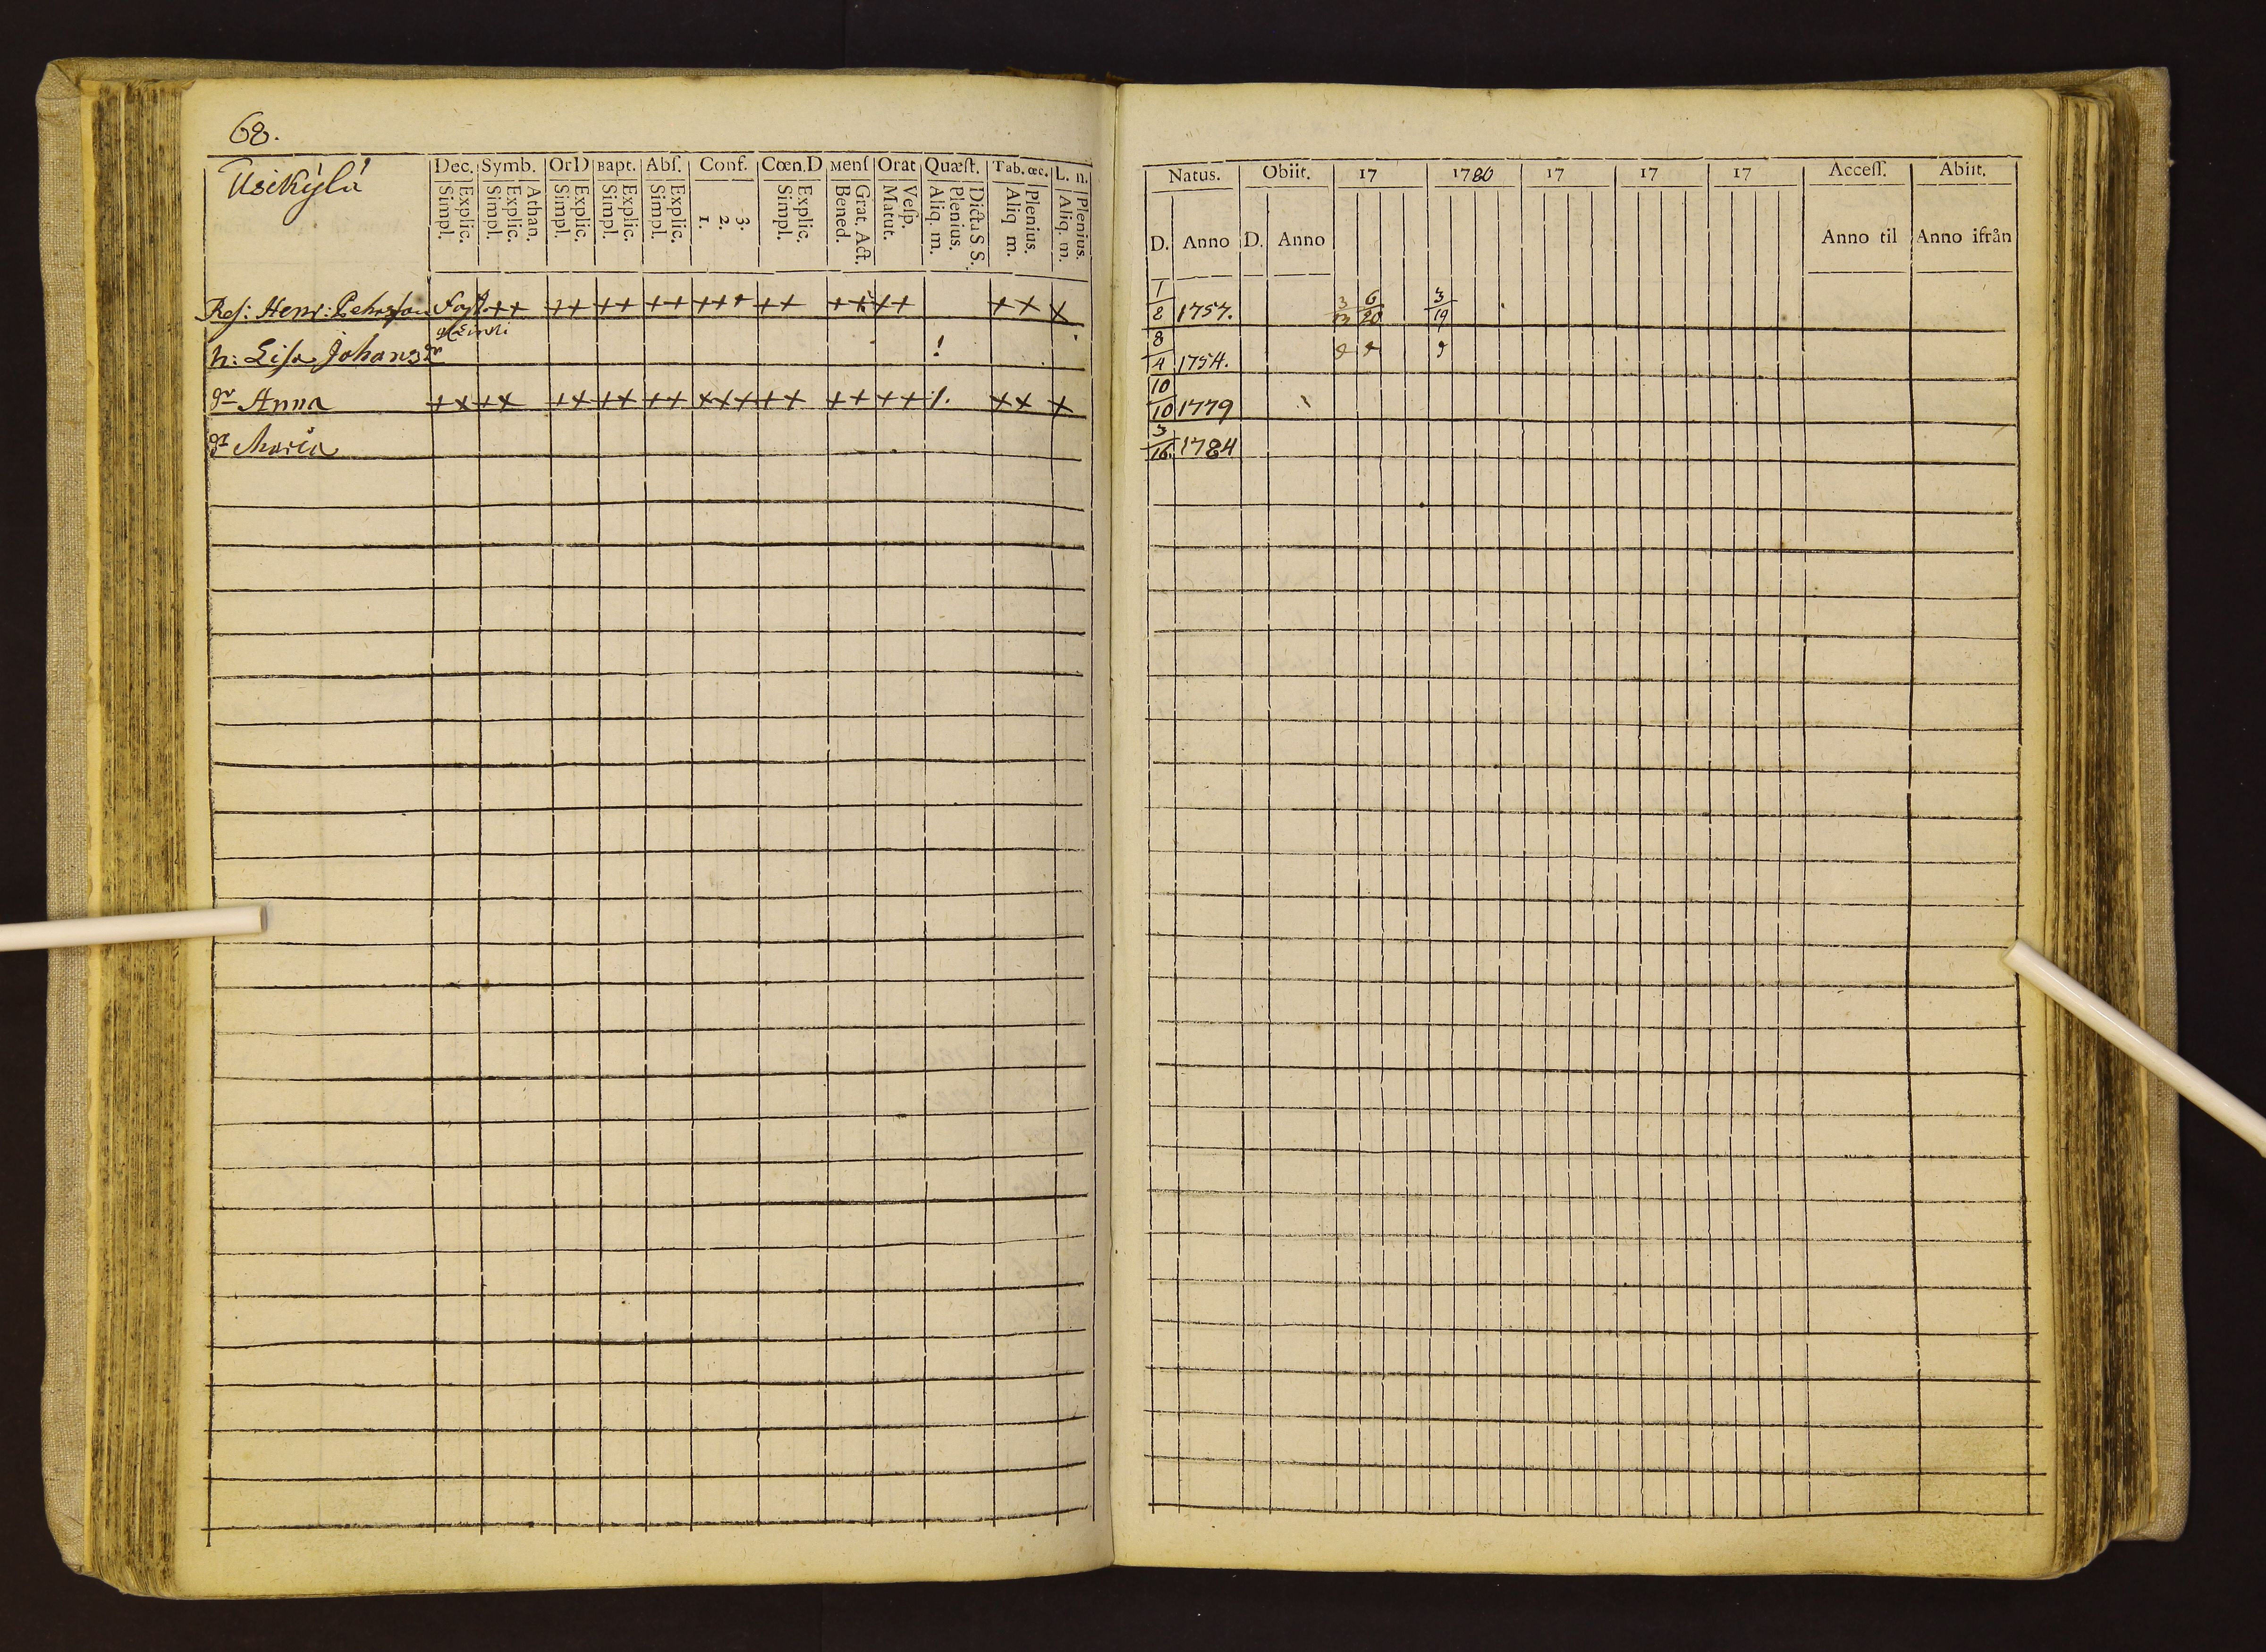 68.
Usikÿlä
Dec. Symb. OrD Bapt. Abſ. Conf. Cœn.D Menſ Orat Quæſt. Tab. œc. L. n.
Explic. Simpl. Athan. Explic. Simpl. Explic. Simpl. Explic. Simpl. Explic. Simpl. 3. 2. 1. Explic. Simpl. Grat. Act. Bened. Veſp. Matut. Dicta S S. Plenius. Aliq. m. Plenius. Aliq m. Plenius. Aliq. m.
Reſ: Henr: Pehrsson ++ ++ ++ ++ +++ ++ ++ ++ ++ +
h: Lisa Johansdr !
dr Anna ++ ++ ++ ++ ++ +++ ++ ++ ++ /. ++ +
dr Maria
Natus. Obiit. 17 1780 17 17 17 Acceſſ. Abiit.
D. Anno D. Anno Anno til Anno ifrån
1/8 1757. 6/20 3/19
8/4 1754.
10/10 1779
3/16. 1784